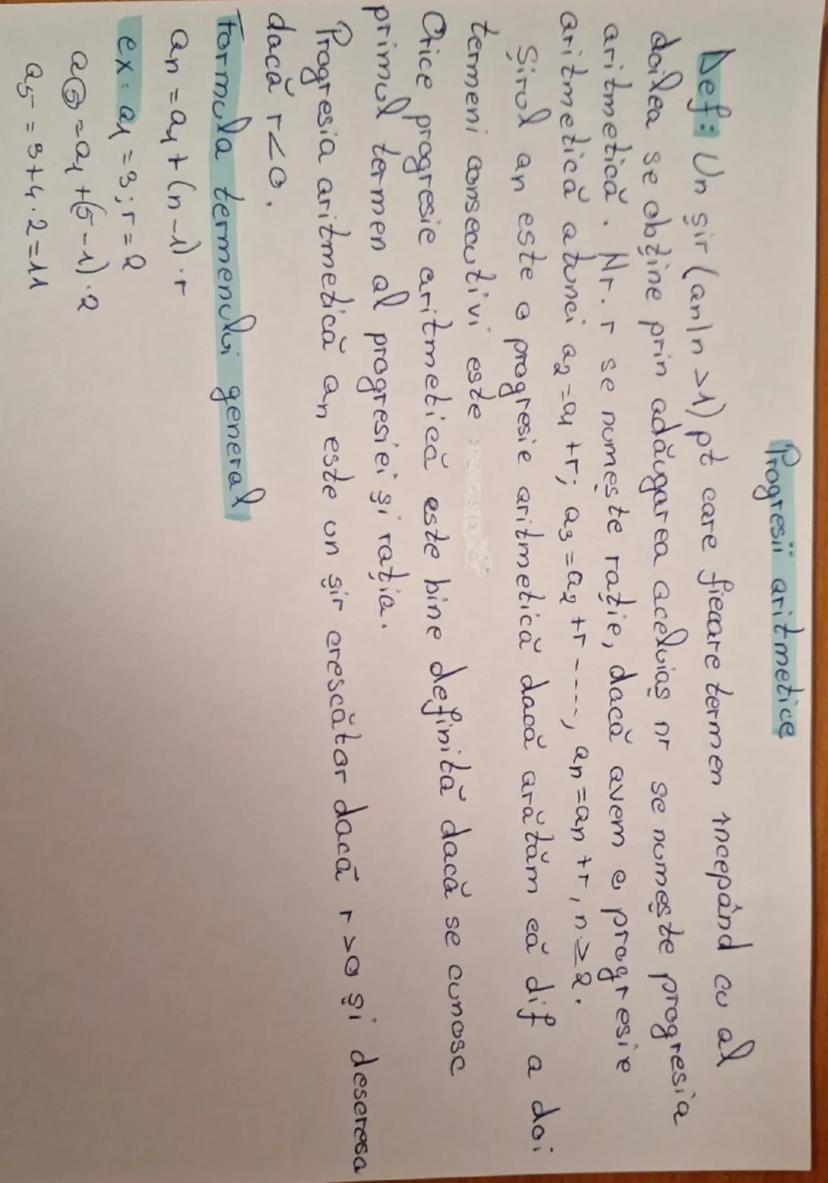 Progresii aritmetice
Def: Un șir (an|n >1) pt care fiecare termen incepând cu al
doilea se obține prin adăugarea aceluiaș nr se numește progresia
aritmetică. Nr. r se numește rație, dacă avem o progresie
aritmetică atunci a₂=a₁+r; a₃=a₂+r----, an=an+r, n≥2.
Șirul an este o progresie aritmetică dacă arătăm că dif a doi
termeni consecutivi este
Orice progresie aritmetică este bine definită dacă se cunosc
primul termen al progresiei și rația.
Progresia aritmetică an este un șir crescător dacă r>0 și descresa
dacă r<0.
Formula termenului general
an=a₁+(n-1)·r
ex: a₁=3; r=2
a⑤=a₁+(5-1)·2
a₅=3+4·2=11